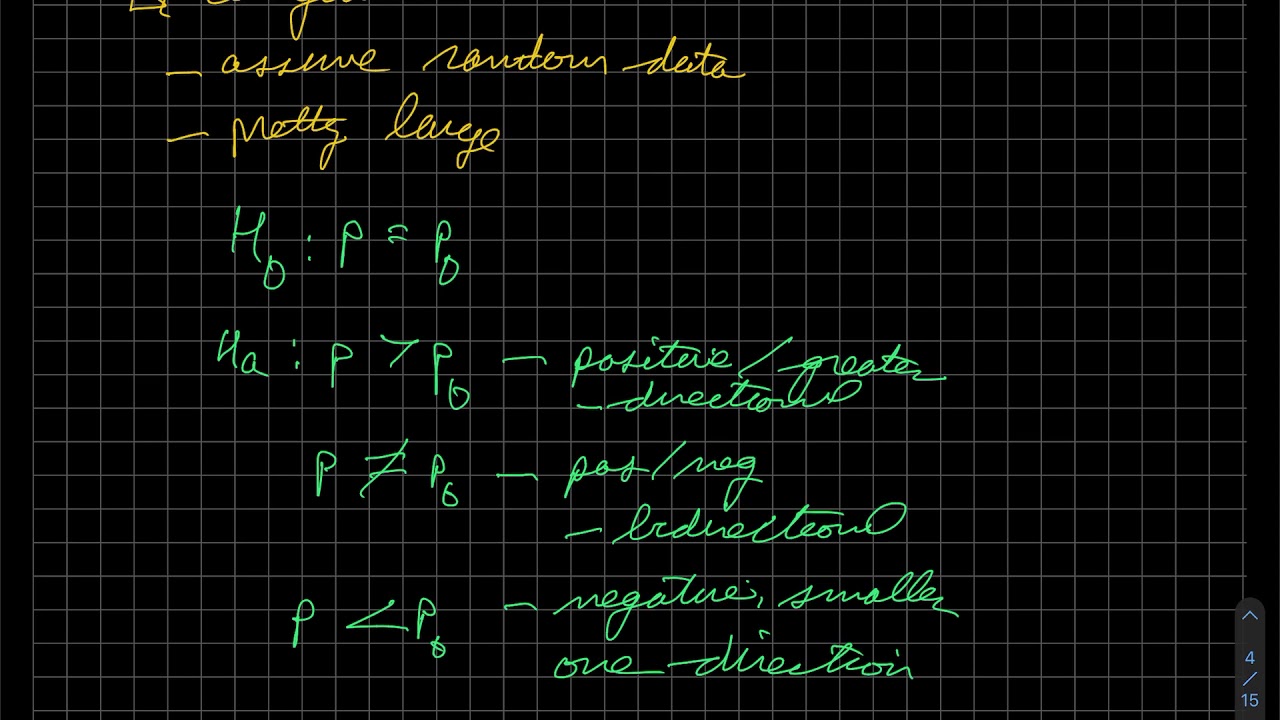 - assume random data
- pretty large
H0 : p = p0
Ha : p > p0 - positive / greater
- directional
p ≠ p0 - pos/neg
- bidirectional
p < p0 - negative, smaller
one-direction
4
/
15